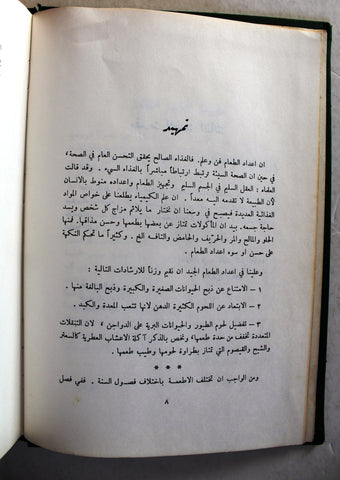 تمهيد
ان اعداد الطعام فن وعلم. فالغذاء الصالح يحقق التحسن العام في الصحة،
في حين ان الصحة السيئة ترتبط ارتباطاً مباشراً بالغذاء السيء. وقد قالت
العقاء: العقل السليم في الجسم السليم وتجهيز الطعام واعداده منوط بالانسان
لأن الطبيعة لا تقدمه اليه معداً. ان علم الكيمياء يطلعنا على خواص المواد
الغذائية العديدة فيصبح في وسعنا ان نختار ما يلائم مزاج كل شخص ويسد
حاجة جسمه. ان المأكولات تمتاز عن بعضها بطعمها وحسن مذاقها. فمنها
الحلو والمالح والمر والحريّف والحامض والتافه الخ. وكثيراً ما تحكم النكهة
على حسن او سوء اعداد الطعام.
وعلينا في اعداد الطعام الجيد ان نقيم وزناً للارشادات التالية:
١ – الامتناع عن ذبح الحيوانات الصغيرة والكبيرة وذبح البالغة منها.
٢ – الابتعاد عن اللحوم الكثيرة الدهن لانها تتعب المعدة والكبد.
٣ – تفضيل لحوم الطيور والحيوانات البرية على الدواجن، لان التنقلات
المتعددة تخفف من حدة طعمها، ونخص بالذكر آكلة الاعشاب العطرية كالسعتر
والشيح والقيصوم التي تمتاز بطراوة لحومها وطيب طعمها.
* * *
ومن الواجب ان تختلف الاطعمة باختلاف فصول السنة. ففي فصل
٨